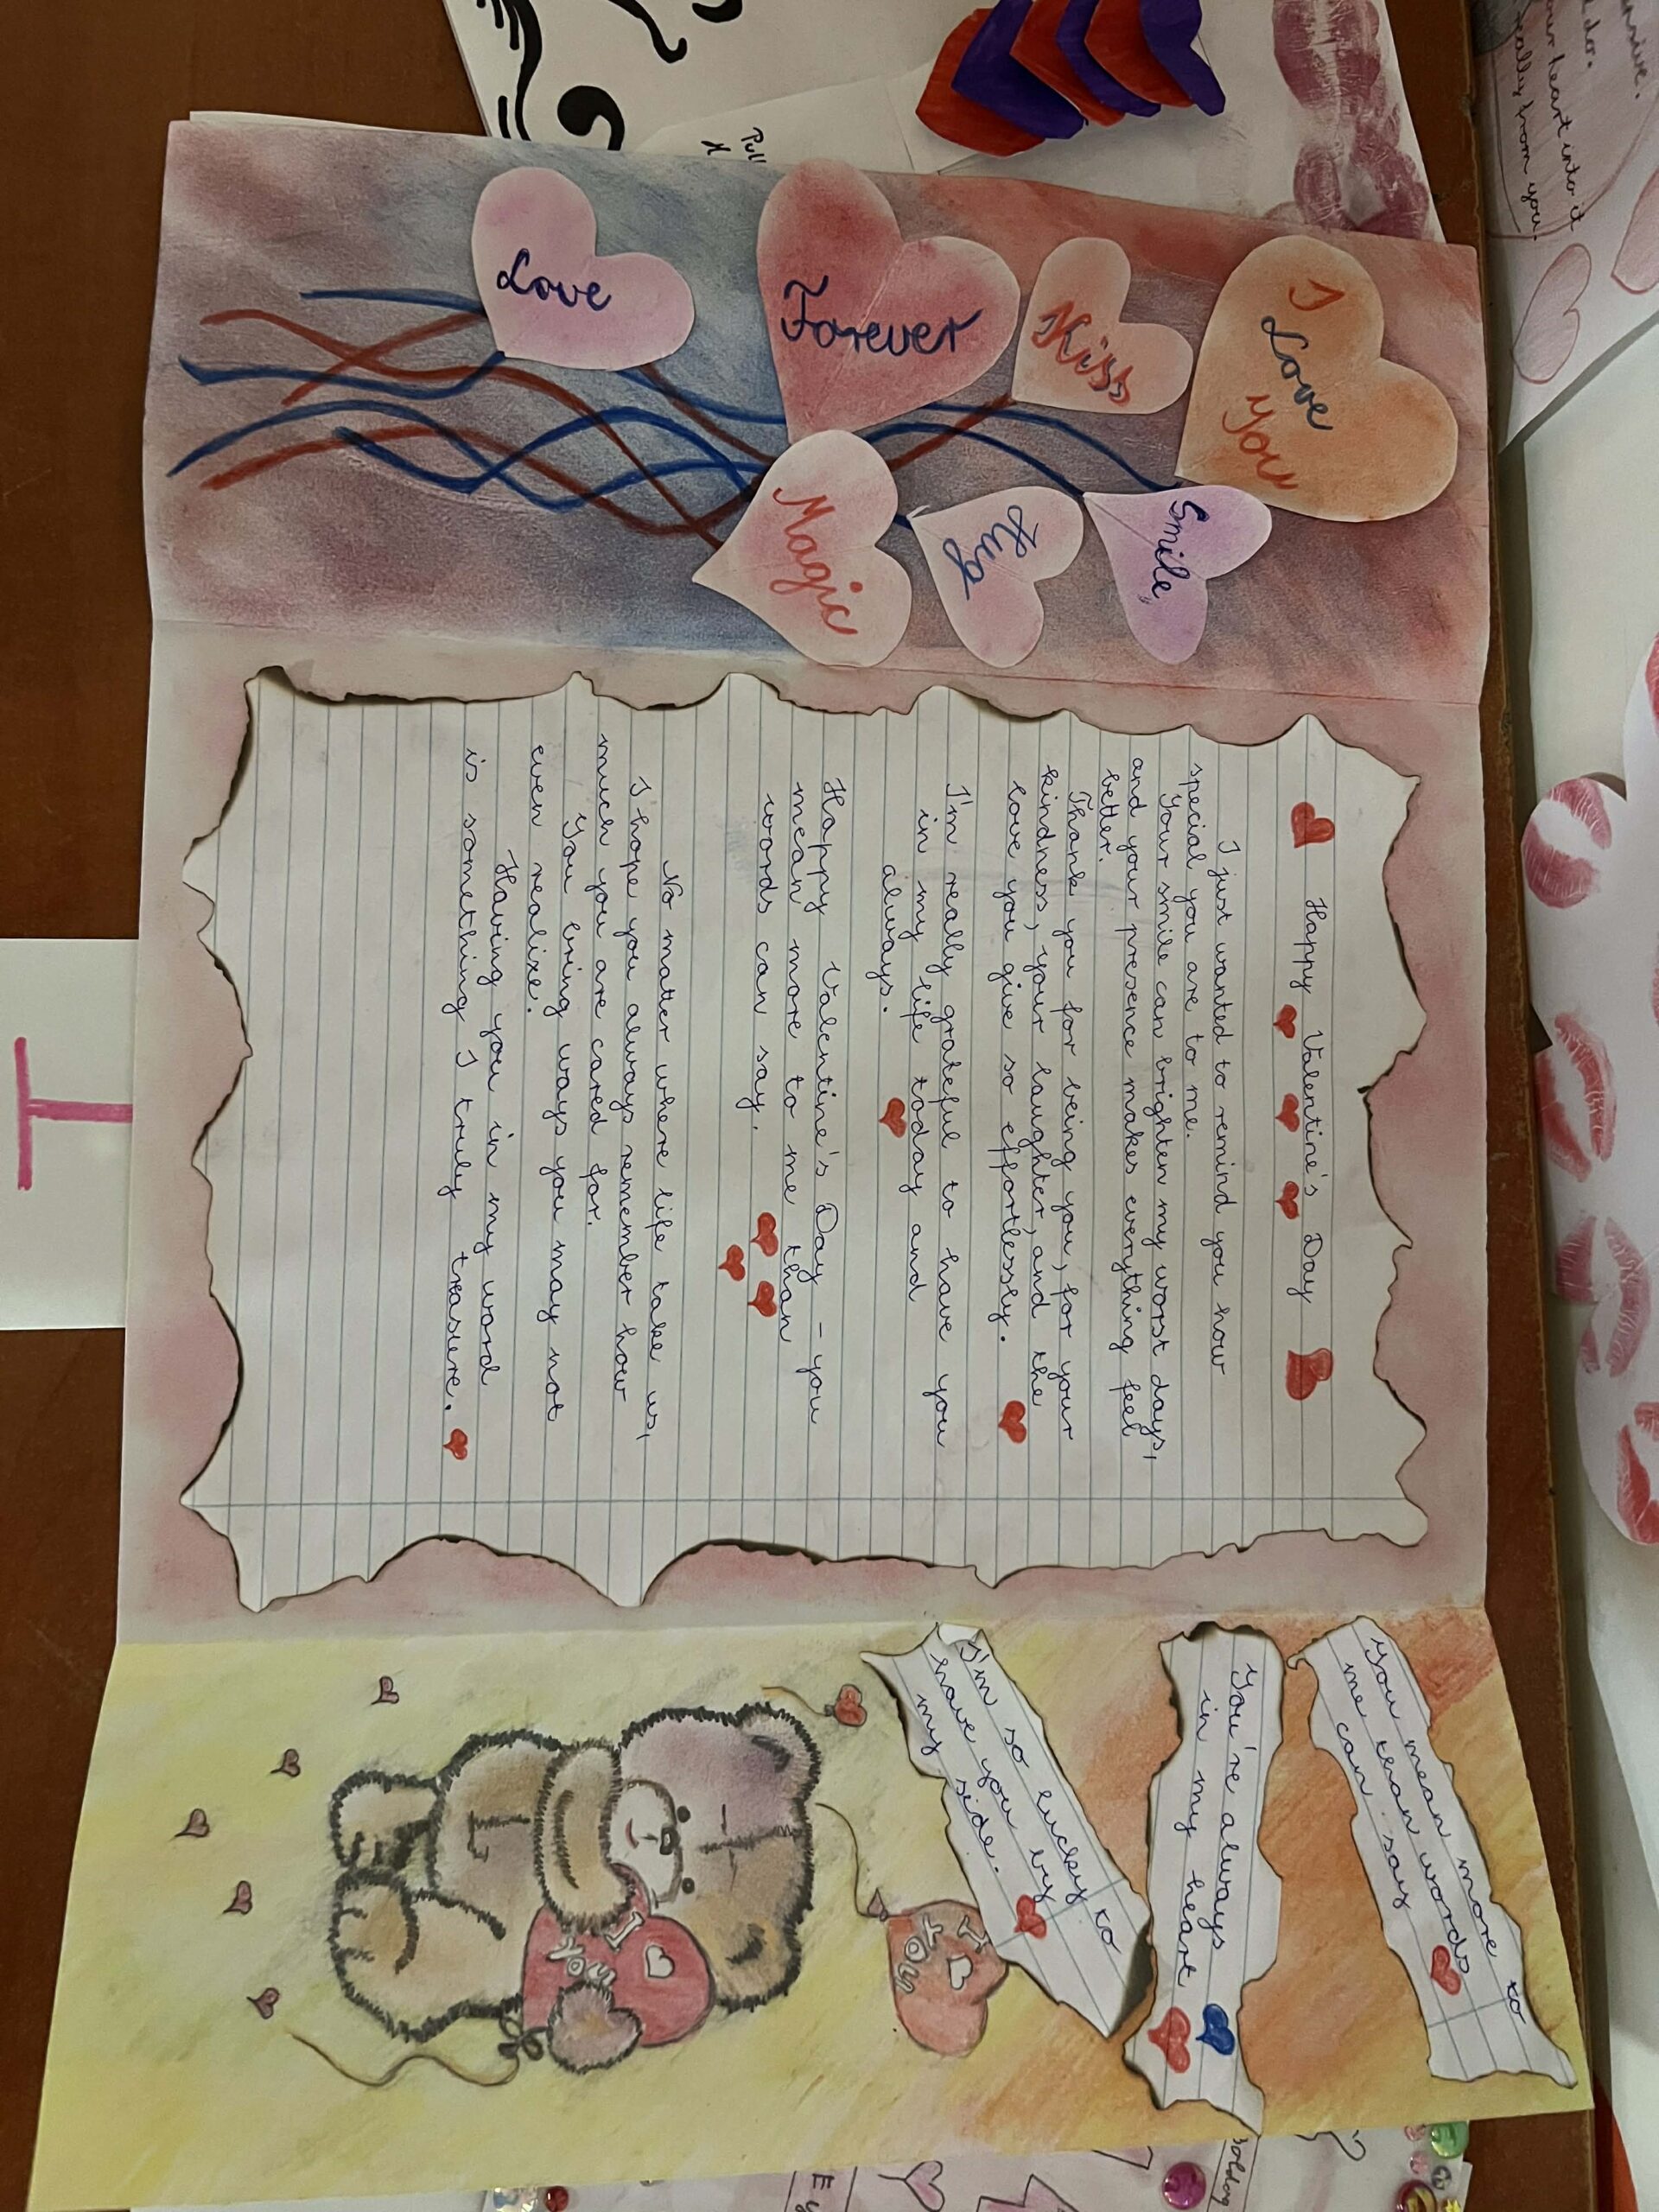 Love
Forever
Kiss
I
Love
You
Magic
Hug
Smile
Happy Valentine's Day
I just wanted to remind you how
special you are to me.
Your smile can brighten my worst days,
and your presence makes everything feel
better.
Thank you for being you, for your
kindness, your laughter, and the
love you give so effortlessly.
I'm really grateful to have you
in my life today and
always.
Happy Valentine's Day - you
mean more to me than
words can say.
No matter where life take us,
I hope you always remember how
much you are cared for.
You bring ways you may not
even realize.
Having you in my word
is something I truly treasure.
You mean more to
me than words
can say
You're always
in my heart
I'm so lucky to
have you by
my side.
I
YOU
I
You
Pull
our heart into it
really from you.
I